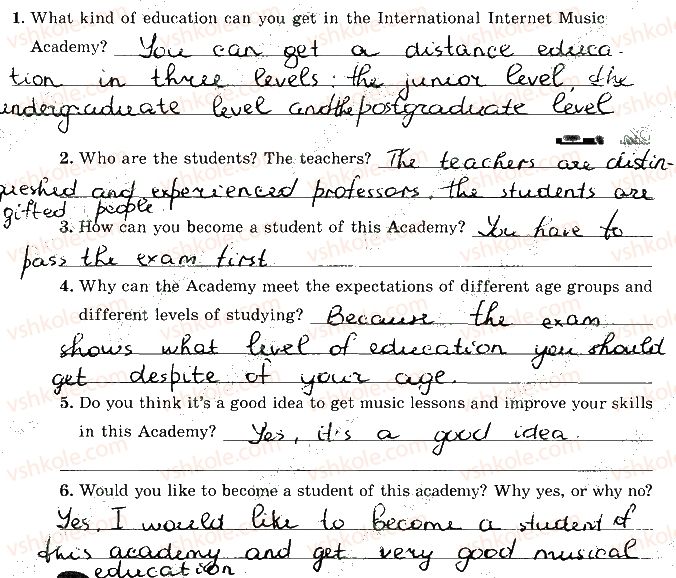 1. What kind of education can you get in the International Internet Music
Academy? You can get a distance educa-
tion in three levels: the junior level, the
undergraduate level and the postgraduate level
2. Who are the students? The teachers? The teachers are distin-
queshed and experienced professors. the students are
gifted people.
3. How can you become a student of this Academy? You have to
pass the exam first
4. Why can the Academy meet the expectations of different age groups and
different levels of studying? Because the exam
shows what level of education you should
get despite of your age.
5. Do you think it's a good idea to get music lessons and improve your skills
in this Academy? Yes, it's a good idea.
6. Would you like to become a student of this academy? Why yes, or why no?
Yes, I would like to become a student of
this academy and get very good musical
education.
vshkole.com